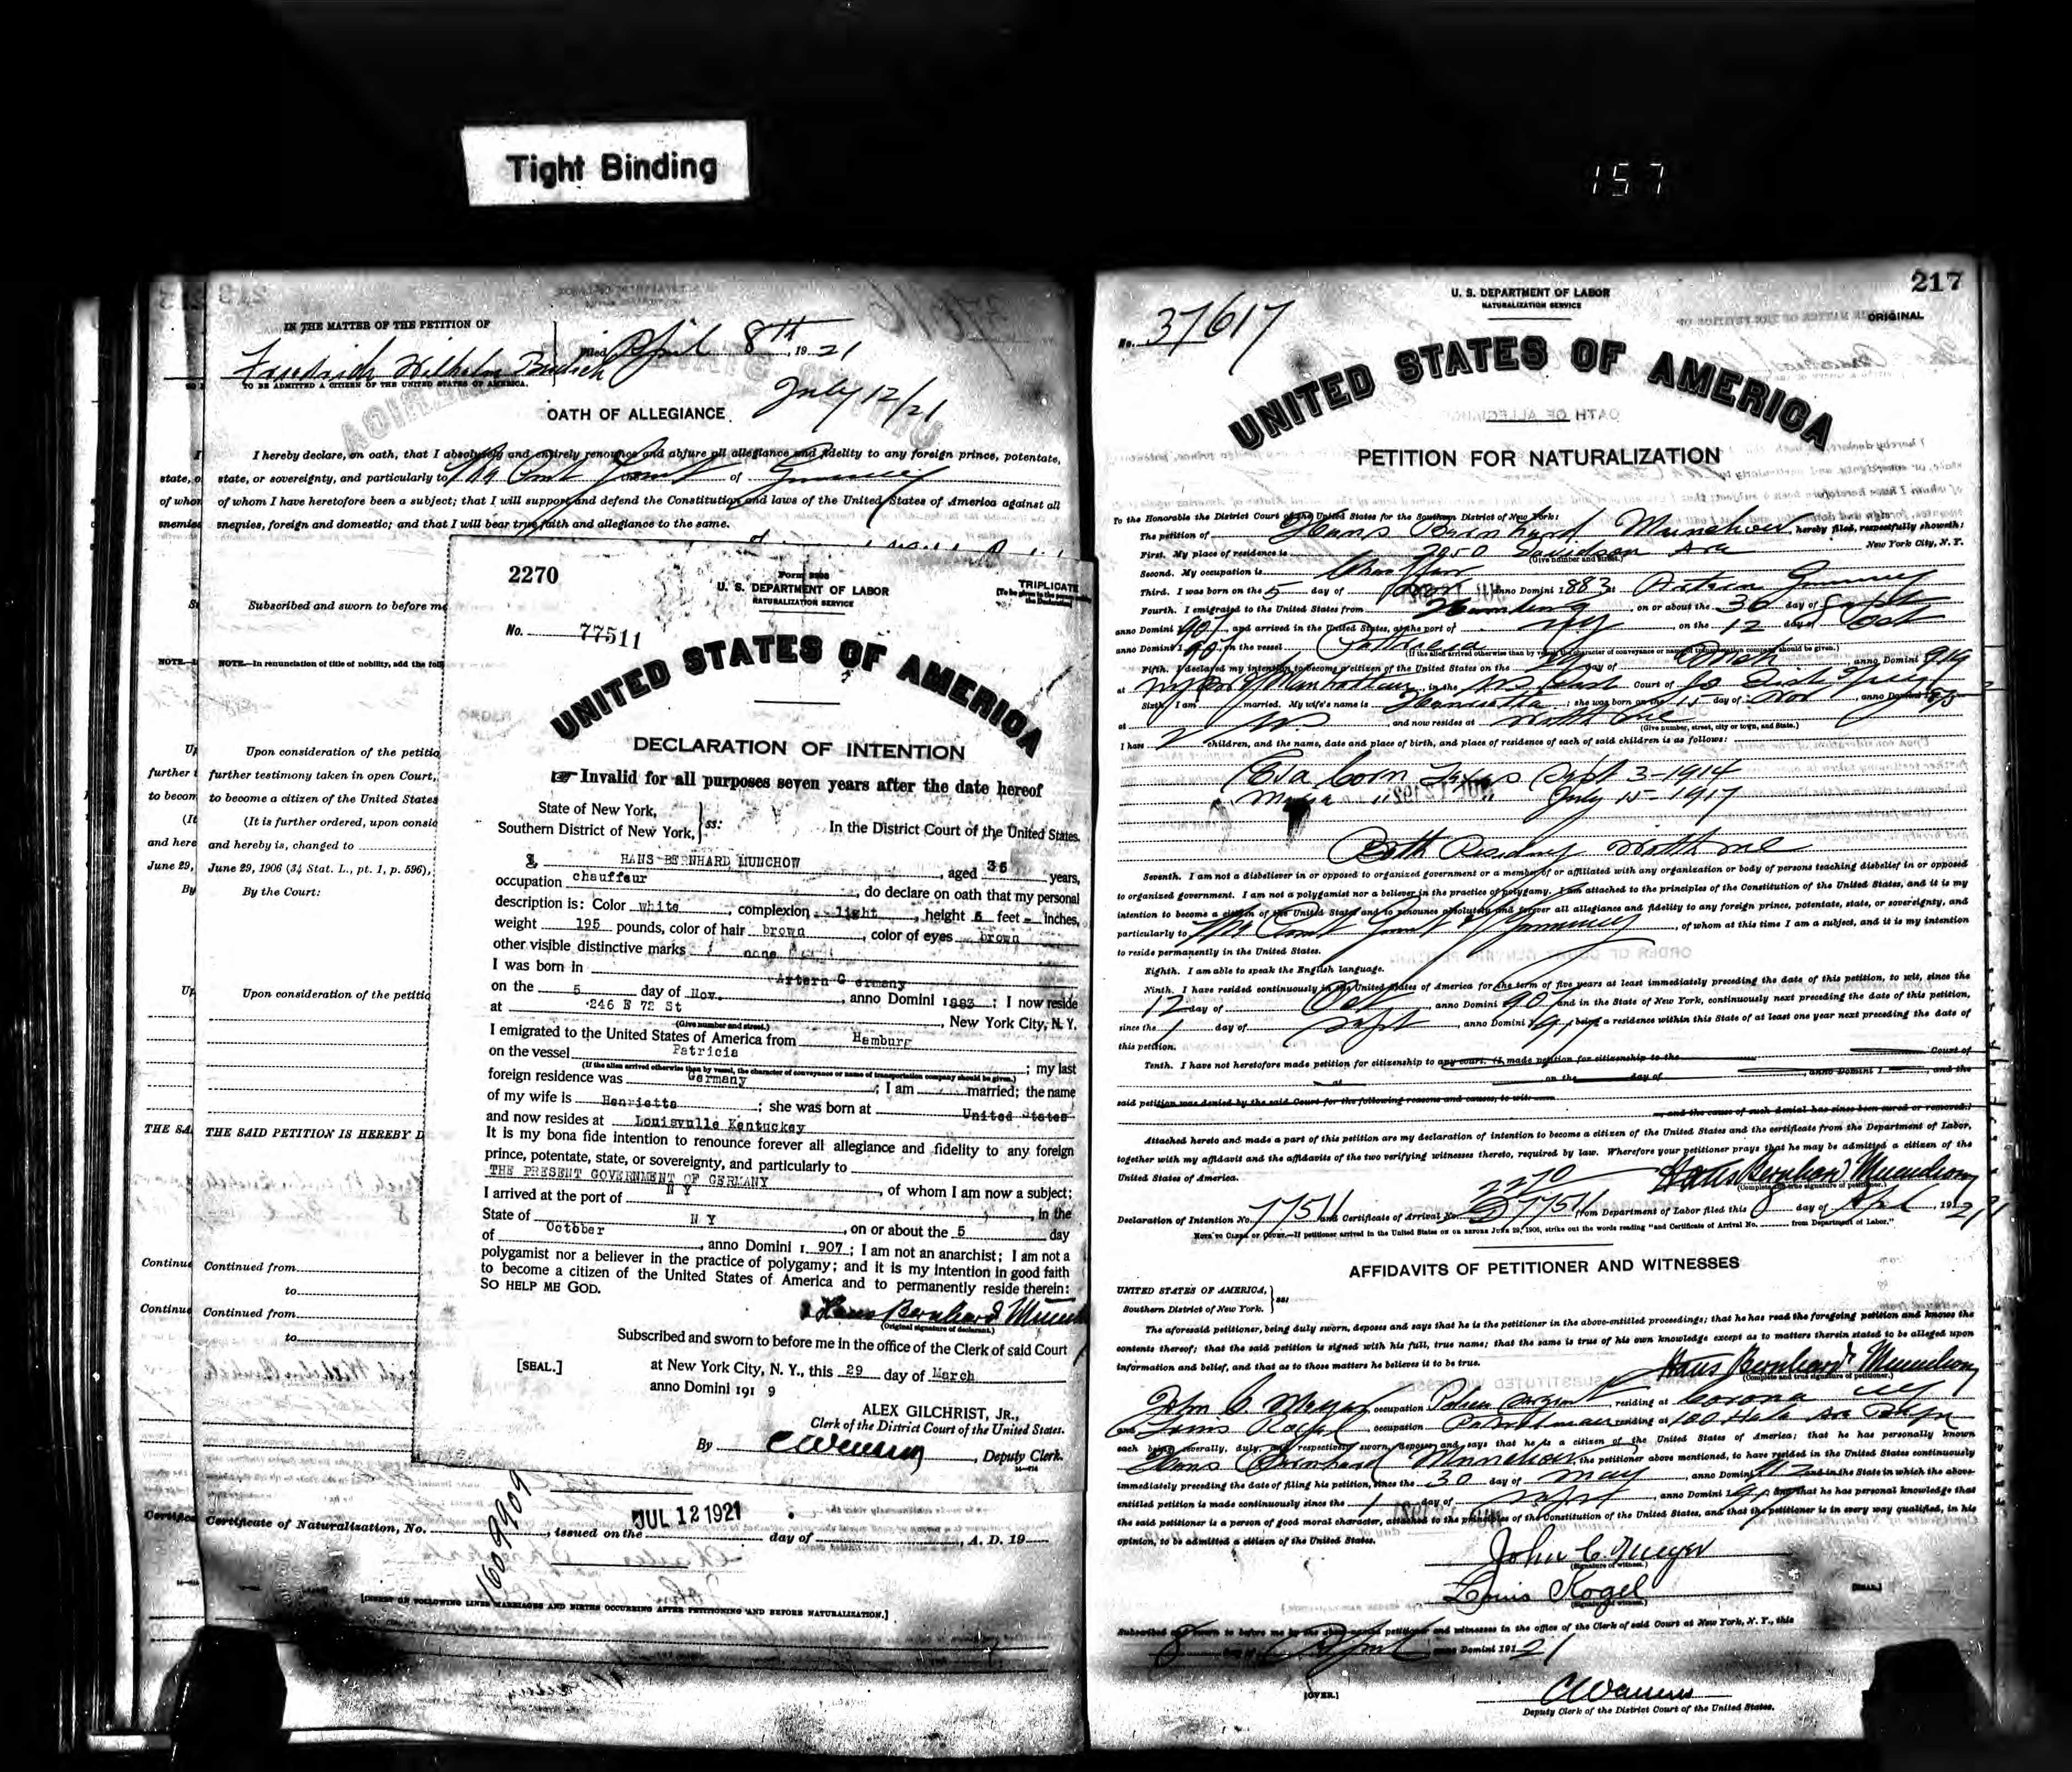 Tight Binding
157
IN THE MATTER OF THE PETITION OF
Friedrich Wilhelm
filed April 8TH, 19 21
TO BE ADMITTED A CITIZEN OF THE UNITED STATES OF AMERICA.
OATH OF ALLEGIANCE
July 12/21
I hereby declare, on oath, that I absolutely and entirely renounce and abjure all allegiance and fidelity to any foreign prince, potentate,
state, or sovereignty, and particularly to of Germany
of whom I have heretofore been a subject; that I will support and defend the Constitution and laws of the United States of America against all
enemies, foreign and domestic; and that I will bear true faith and allegiance to the same.
Subscribed and sworn to before me
NOTE.—In renunciation of title of nobility, add the
Upon consideration of the petitio
further testimony taken in open Court,
to become a citizen of the United States
(It is further ordered, upon consid
and hereby is, changed to
June 29, 1906 (34 Stat. L., pt. 1, p. 596),
By the Court:
Upon consideration of the petitio
THE SAID PETITION IS HEREBY D
Continued from
to
Continued from
to
Certificate of Naturalization, No. , issued on the JUL 12 1921 day of , A. D. 19
[INSERT ON FOLLOWING LINES MARRIAGES AND BIRTHS OCCURRING AFTER PETITIONING AND BEFORE NATURALIZATION.]
2270
U. S. DEPARTMENT OF LABOR
NATURALIZATION SERVICE
TRIPLICATE
No. 77511
UNITED STATES OF AMERICA
DECLARATION OF INTENTION
Invalid for all purposes seven years after the date hereof
State of New York,
Southern District of New York, ss:
In the District Court of the United States.
I, HANS BERNHARD MUNCHOW, aged 35 years,
occupation chauffeur, do declare on oath that my personal
description is: Color white, complexion light, height 5 feet - inches,
weight 195 pounds, color of hair brown, color of eyes brown
other visible distinctive marks none
I was born in Artern Germany
on the 5 day of Nov., anno Domini 1883; I now reside
at 246 E 72 St, New York City, N.Y.
(Give number and street.)
I emigrated to the United States of America from Hamburg
on the vessel Patricia
(If the alien arrived otherwise than by vessel, the character of conveyance or name of transportation company should be given.); my last
foreign residence was Germany; I am married; the name
of my wife is Henrietta; she was born at United States
and now resides at Louisville Kentuckey
It is my bona fide intention to renounce forever all allegiance and fidelity to any foreign
prince, potentate, state, or sovereignty, and particularly to
THE PRESENT GOVERNMENT OF GERMANY, of whom I am now a subject;
I arrived at the port of N Y, in the
State of N Y, on or about the 5 day
of October, anno Domini 1 907; I am not an anarchist; I am not a
polygamist nor a believer in the practice of polygamy; and it is my intention in good faith
to become a citizen of the United States of America and to permanently reside therein:
SO HELP ME GOD.
Hans Bernhard
(Original signature of declarant.)
Subscribed and sworn to before me in the office of the Clerk of said Court
[SEAL.]
at New York City, N. Y., this 29 day of March
anno Domini 191 9
ALEX GILCHRIST, JR.,
Clerk of the District Court of the United States.
By , Deputy Clerk.
217
U. S. DEPARTMENT OF LABOR
NATURALIZATION SERVICE
ORIGINAL
No. 37617
UNITED STATES OF AMERICA
PETITION FOR NATURALIZATION
To the Honorable the District Court of the United States for the Southern District of New York:
The petition of Hans Bernhard Munchow, hereby filed, respectfully showeth:
First. My place of residence is Davidson Ave New York City, N. Y.
(Give number and street.)
Second. My occupation is Chauffeur
Third. I was born on the 5 day of anno Domini 1883 at Artern Germany
Fourth. I emigrated to the United States from Hamburg on or about the 30 day of Sept
anno Domini 1907, and arrived in the United States, at the port of NY on the 12 day of Oct
anno Domini 1907, on the vessel
(If the alien arrived otherwise than by vessel, the character of conveyance or name of transportation company should be given.)
Fifth. I declared my intention to become a citizen of the United States on the day of , anno Domini 1919
at Manhattan, in the Court of
Sixth. I am married. My wife's name is Henrietta; she was born on the day of Nov, anno Domini
at , and now resides at with me
(Give number, street, city or town, and State.)
I have 2 children, and the name, date and place of birth, and place of residence of each of said children is as follows:
Eva born Texas Sept 3-1914
" " July 15-1917
Both Residing with me
Seventh. I am not a disbeliever in or opposed to organized government or a member of or affiliated with any organization or body of persons teaching disbelief in or opposed
to organized government. I am not a polygamist nor a believer in the practice of polygamy. I am attached to the principles of the Constitution of the United States, and it is my
intention to become a citizen of the United States and to renounce absolutely and forever all allegiance and fidelity to any foreign prince, potentate, state, or sovereignty, and
particularly to Germany, of whom at this time I am a subject, and it is my intention
to reside permanently in the United States.
Eighth. I am able to speak the English language.
Ninth. I have resided continuously in the United States of America for the term of five years at least immediately preceding the date of this petition, to wit, since the
12 day of Oct, anno Domini 1907 and in the State of New York, continuously next preceding the date of this petition,
since the 1 day of Sept, anno Domini , being a residence within this State of at least one year next preceding the date of
this petition.
Tenth. I have not heretofore made petition for citizenship to any court. (I made petition for citizenship to the Court of
at on the day of , anno Domini 1 , and the
said petition was denied by the said Court for the following reasons and causes, to wit
and the cause of such denial has since been cured or removed.)
Attached hereto and made a part of this petition are my declaration of intention to become a citizen of the United States and the certificate from the Department of Labor,
together with my affidavit and the affidavits of the two verifying witnesses thereto, required by law. Wherefore your petitioner prays that he may be admitted a citizen of the
United States of America.
2270
Hans Bernhard
(Complete and true signature of petitioner.)
Declaration of Intention No. 77511 and Certificate of Arrival No. from Department of Labor filed this 8 day of April, 1921
NOTE TO CLERK OF COURT.—If petitioner arrived in the United States on or before June 29, 1906, strike out the words reading "and Certificate of Arrival No. from Department of Labor."
AFFIDAVITS OF PETITIONER AND WITNESSES
UNITED STATES OF AMERICA,
Southern District of New York. ss:
The aforesaid petitioner, being duly sworn, deposes and says that he is the petitioner in the above-entitled proceedings; that he has read the foregoing petition and knows the
contents thereof; that the said petition is signed with his full, true name; that the same is true of his own knowledge except as to matters therein stated to be alleged upon
information and belief, and that as to those matters he believes it to be true.
Hans Bernhard
(Complete and true signature of petitioner.)
John C. Meyer, occupation Police Sergeant, residing at Corona NY
and Louis Kogel, occupation Patrolman residing at
each being severally, duly, and respectively sworn, deposes and says that he is a citizen of the United States of America; that he has personally known
Hans Bernhard Munchow the petitioner above mentioned, to have resided in the United States continuously
immediately preceding the date of filing his petition, since the 30 day of May, anno Domini and in the State in which the above-
entitled petition is made continuously since the 1 day of Sept, anno Domini , and that he has personal knowledge that
the said petitioner is a person of good moral character, attached to the principles of the Constitution of the United States, and that the petitioner is in every way qualified, in his
opinion, to be admitted a citizen of the United States.
John C. Meyer
(Signature of witness.)
Louis Kogel
(Signature of witness.)
[SEAL.]
Subscribed and sworn to before me by the above-named petitioner and witnesses in the office of the Clerk of said Court at New York, N. Y., this
8 day of April anno Domini 1921
[OVER.]
Deputy Clerk of the District Court of the United States.